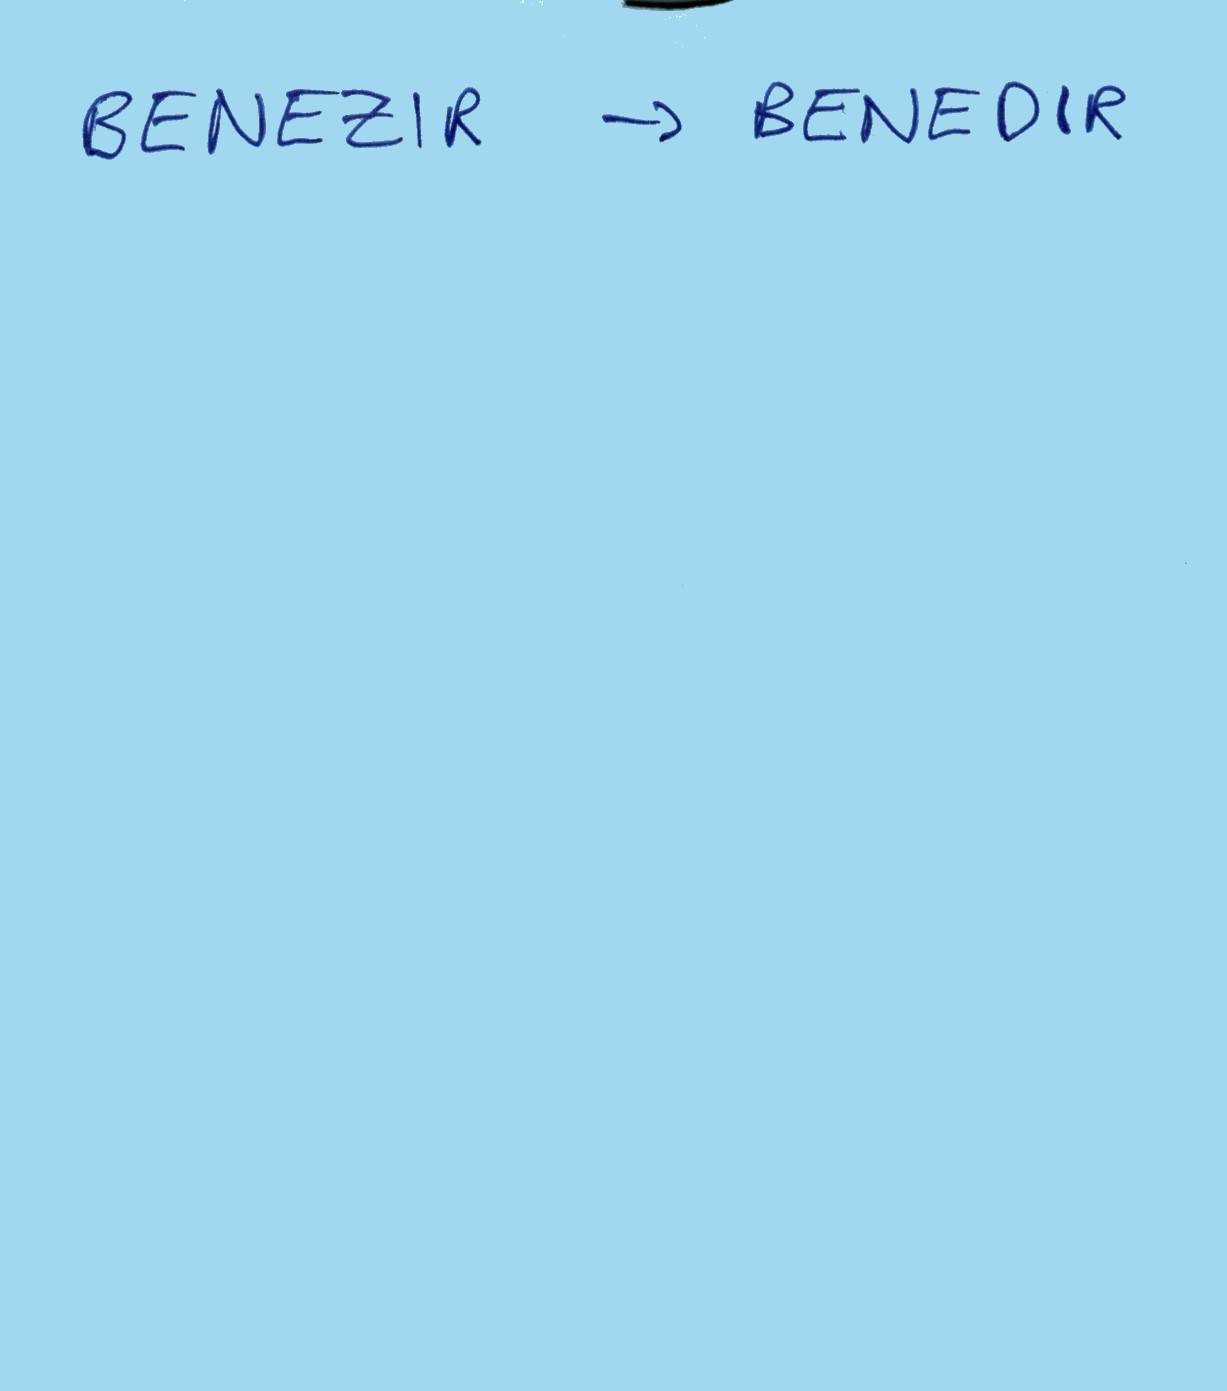 BENEZIR → BENEDIR